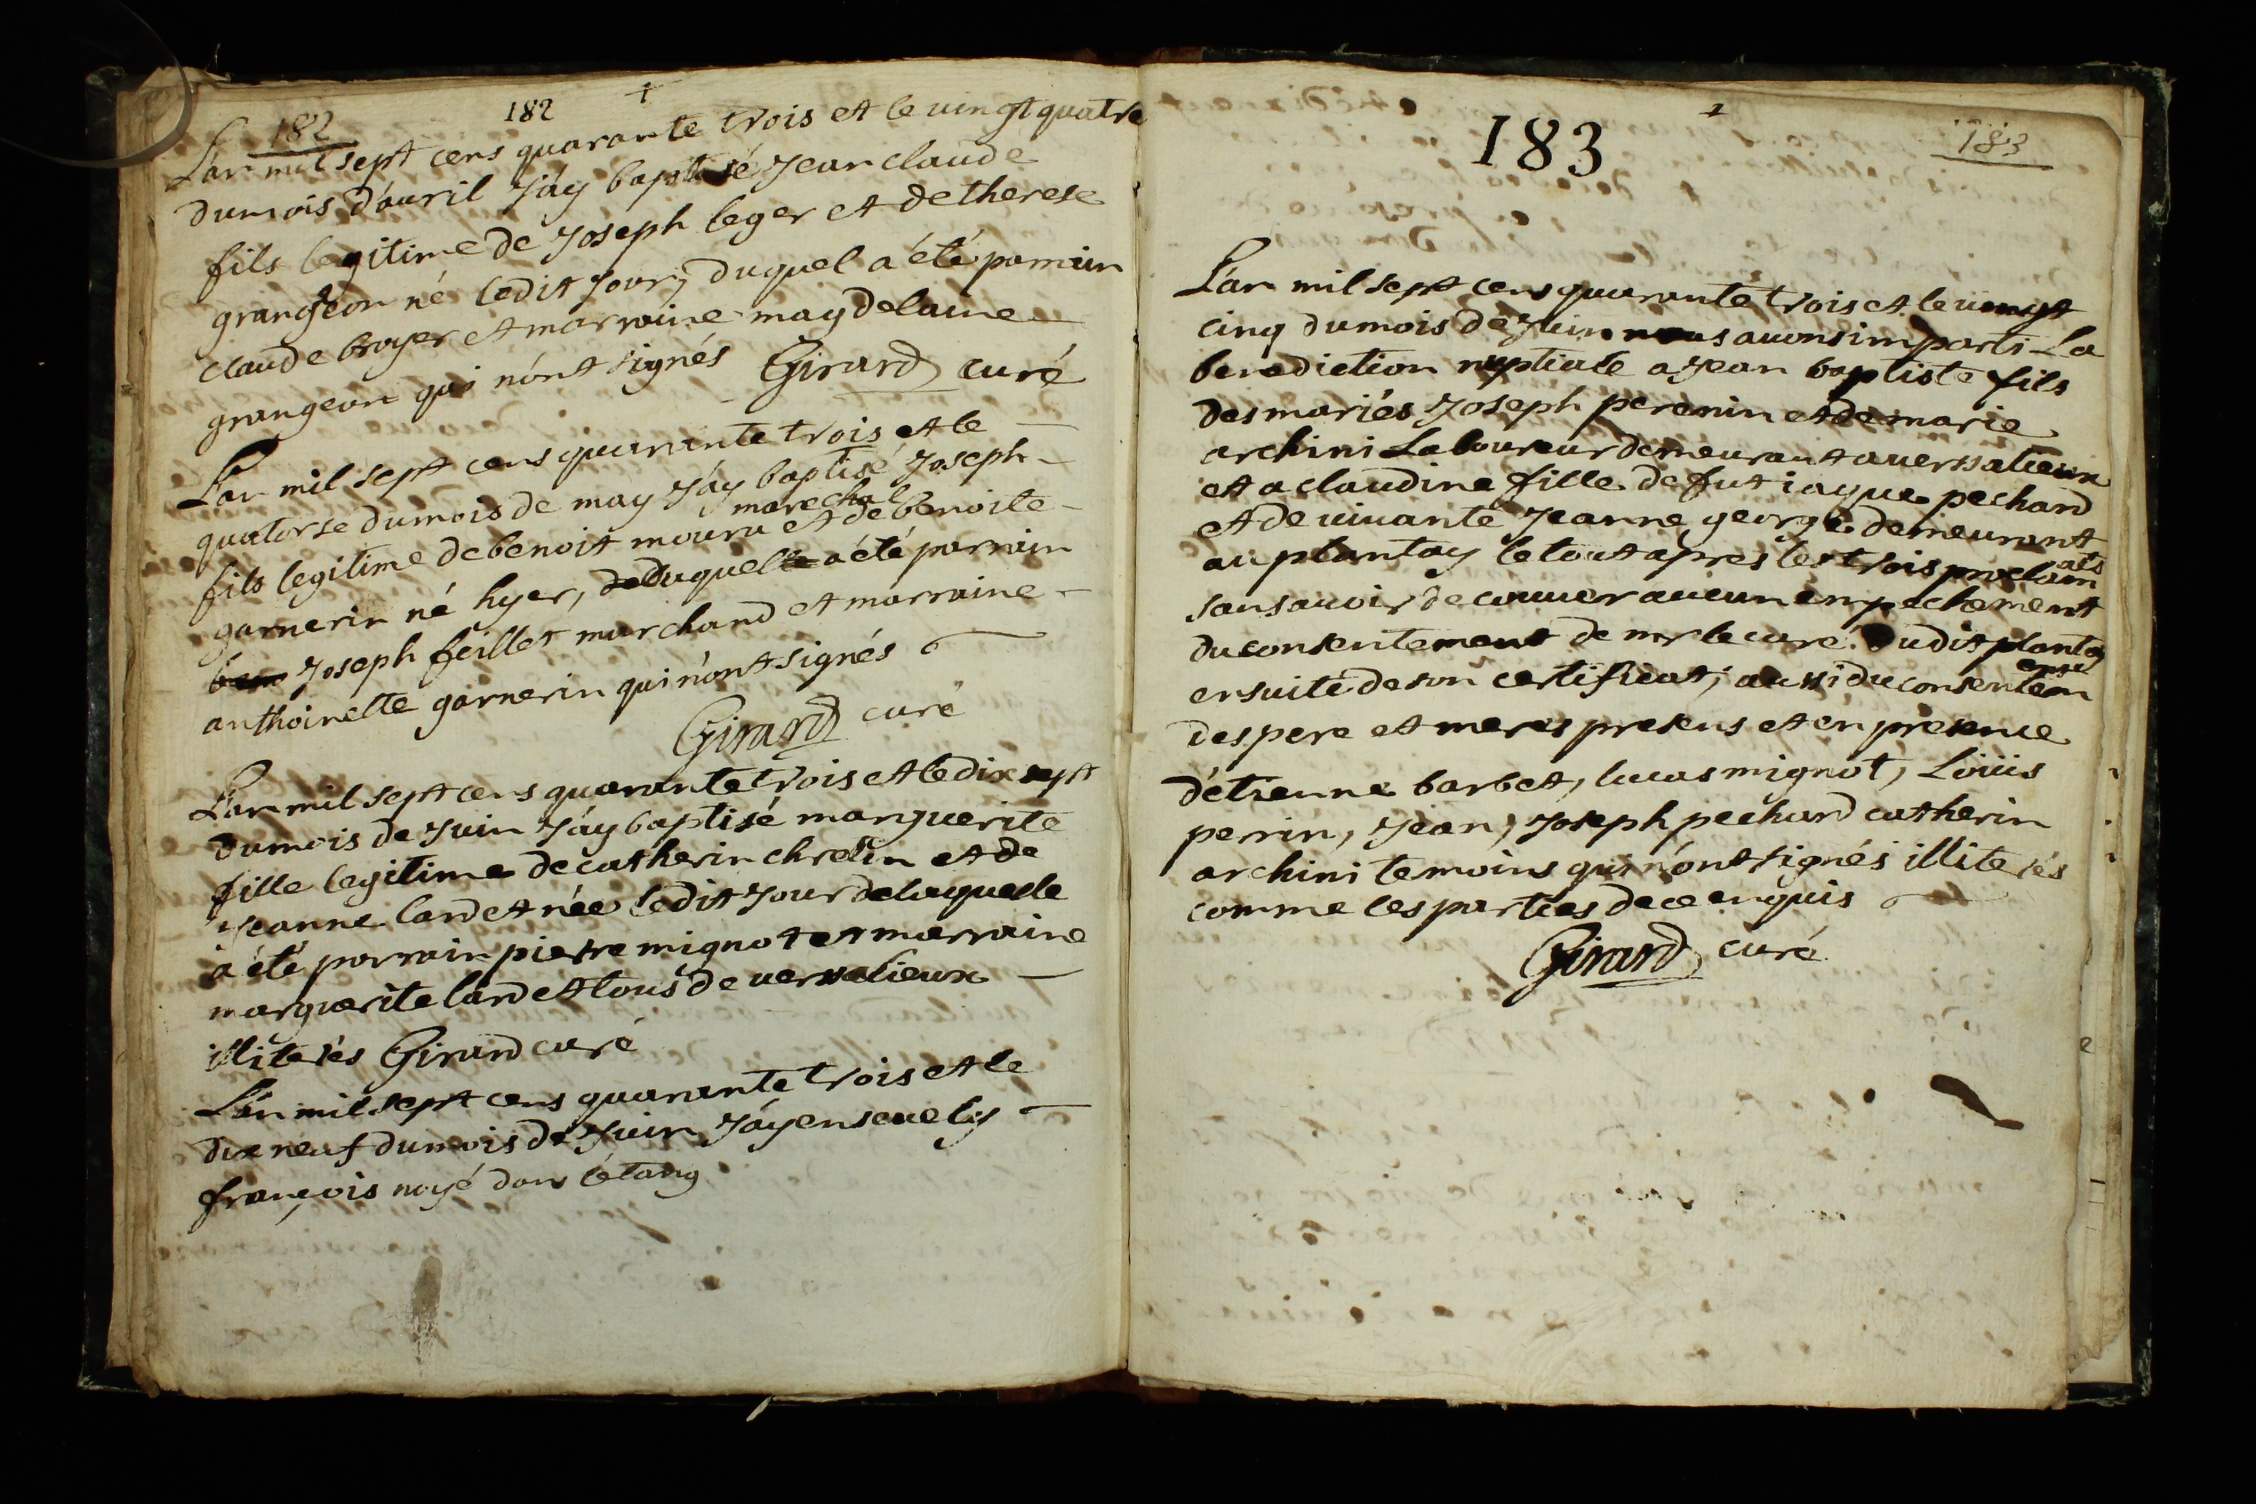 182
182
L'an mil sept cens quarante trois et le vingt quatre
du mois d'avril J'áy baptisé Jean claude
fils legitime de Joseph leger et de therese
grangeon né ledit Jour, duquel a été parrain
claude broyer et marraine magdelaine
grangeon qui n'ónt signés Girard curé
L'an mil sept cens quarante trois et le
quatorse du mois de may J'áy baptisé Joseph
fils legitime de benoit moura marechal et de benoite
garnerin né hyer, duquel a été parrain
Joseph feillet marchand et marraine
anthoinette garnerin qui n'ónt signés
Girard curé
L'an mil sept cens quarante trois et le dix sept
du mois de Juin J'áy baptisé marguerite
fille legitime de catherin chretin et de
Jeanne lardet née ledit Jour de laquelle
a été parrain pierre mignot et marraine
marguerite lardet tous de versalieux
illiterés Girard curé
L'án mil sept cens quarante trois et le
dix neuf du mois de Juin J'áy ensevely
françois noyé dans l'étang
183
183
L'an mil sept cens quarante trois et le vingt
cinq du mois de Juin nous avons imparti La
benediction nuptiale a Jean baptiste fils
des mariés Joseph perenin et de marie
archini Laboureur demeurant a versalieux
et a claudine fille de fut iaque pechard
et de vivante Jeanne george demeurant
au plantay le tout apres les trois proclamats
sans avoir decouver aucun enpechement
du consentement de mr le curé dudit plantay
ensuite de son certificat, aussi du consentem
des pere et meres presens et en presence
d'étienne barbet, lucas mignot, Loüis
perrin, Jean, Joseph pechard catherin
archini temoins qui n'ónt signés illiterés
comme les parties de ce enquis
Girard curé